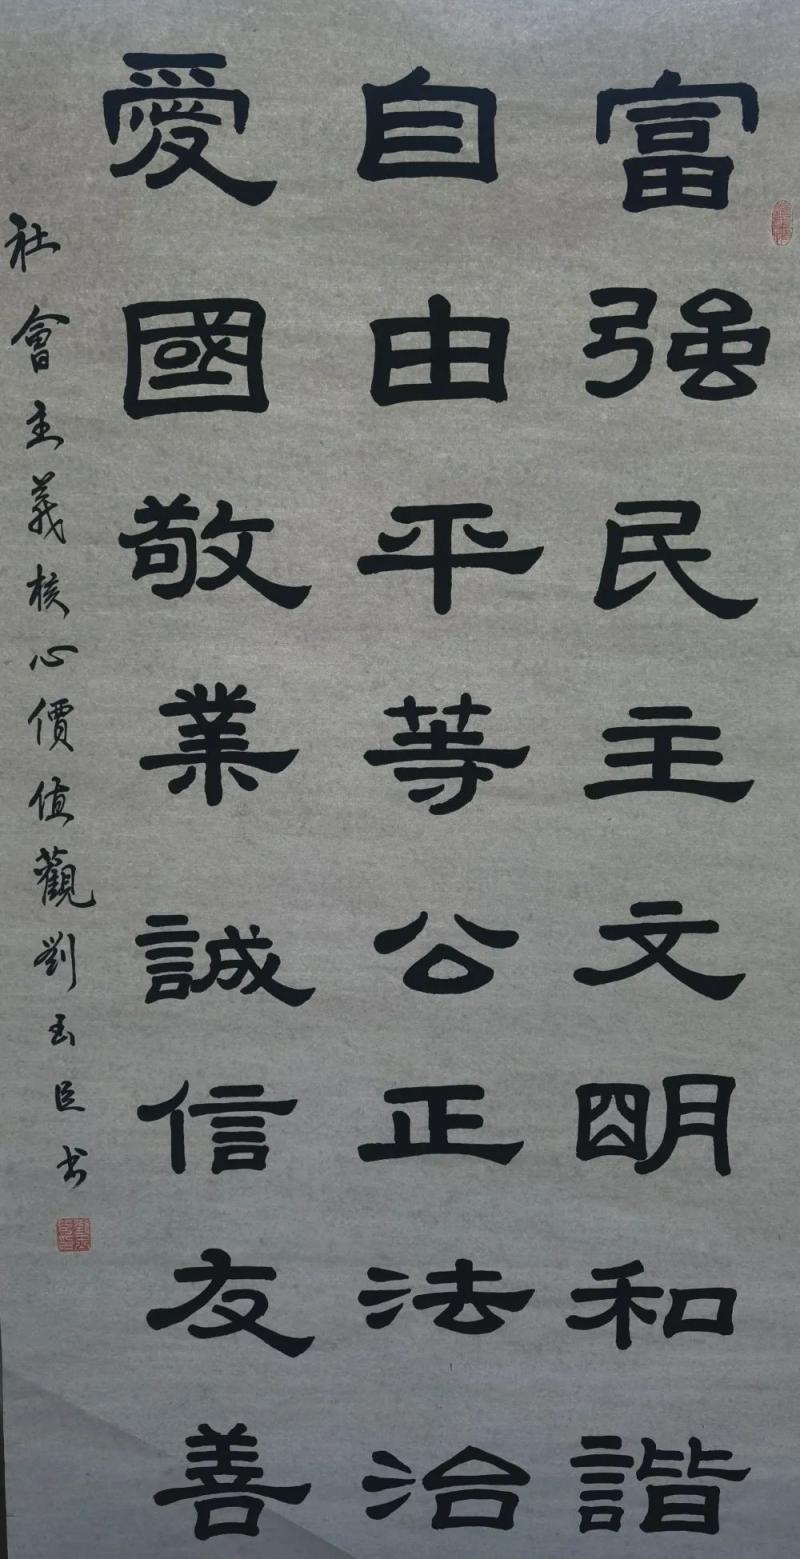 富强民主文明和諧
自由平等公正法治
愛國敬業誠信友善
社會主義核心價值觀劉玉臣书